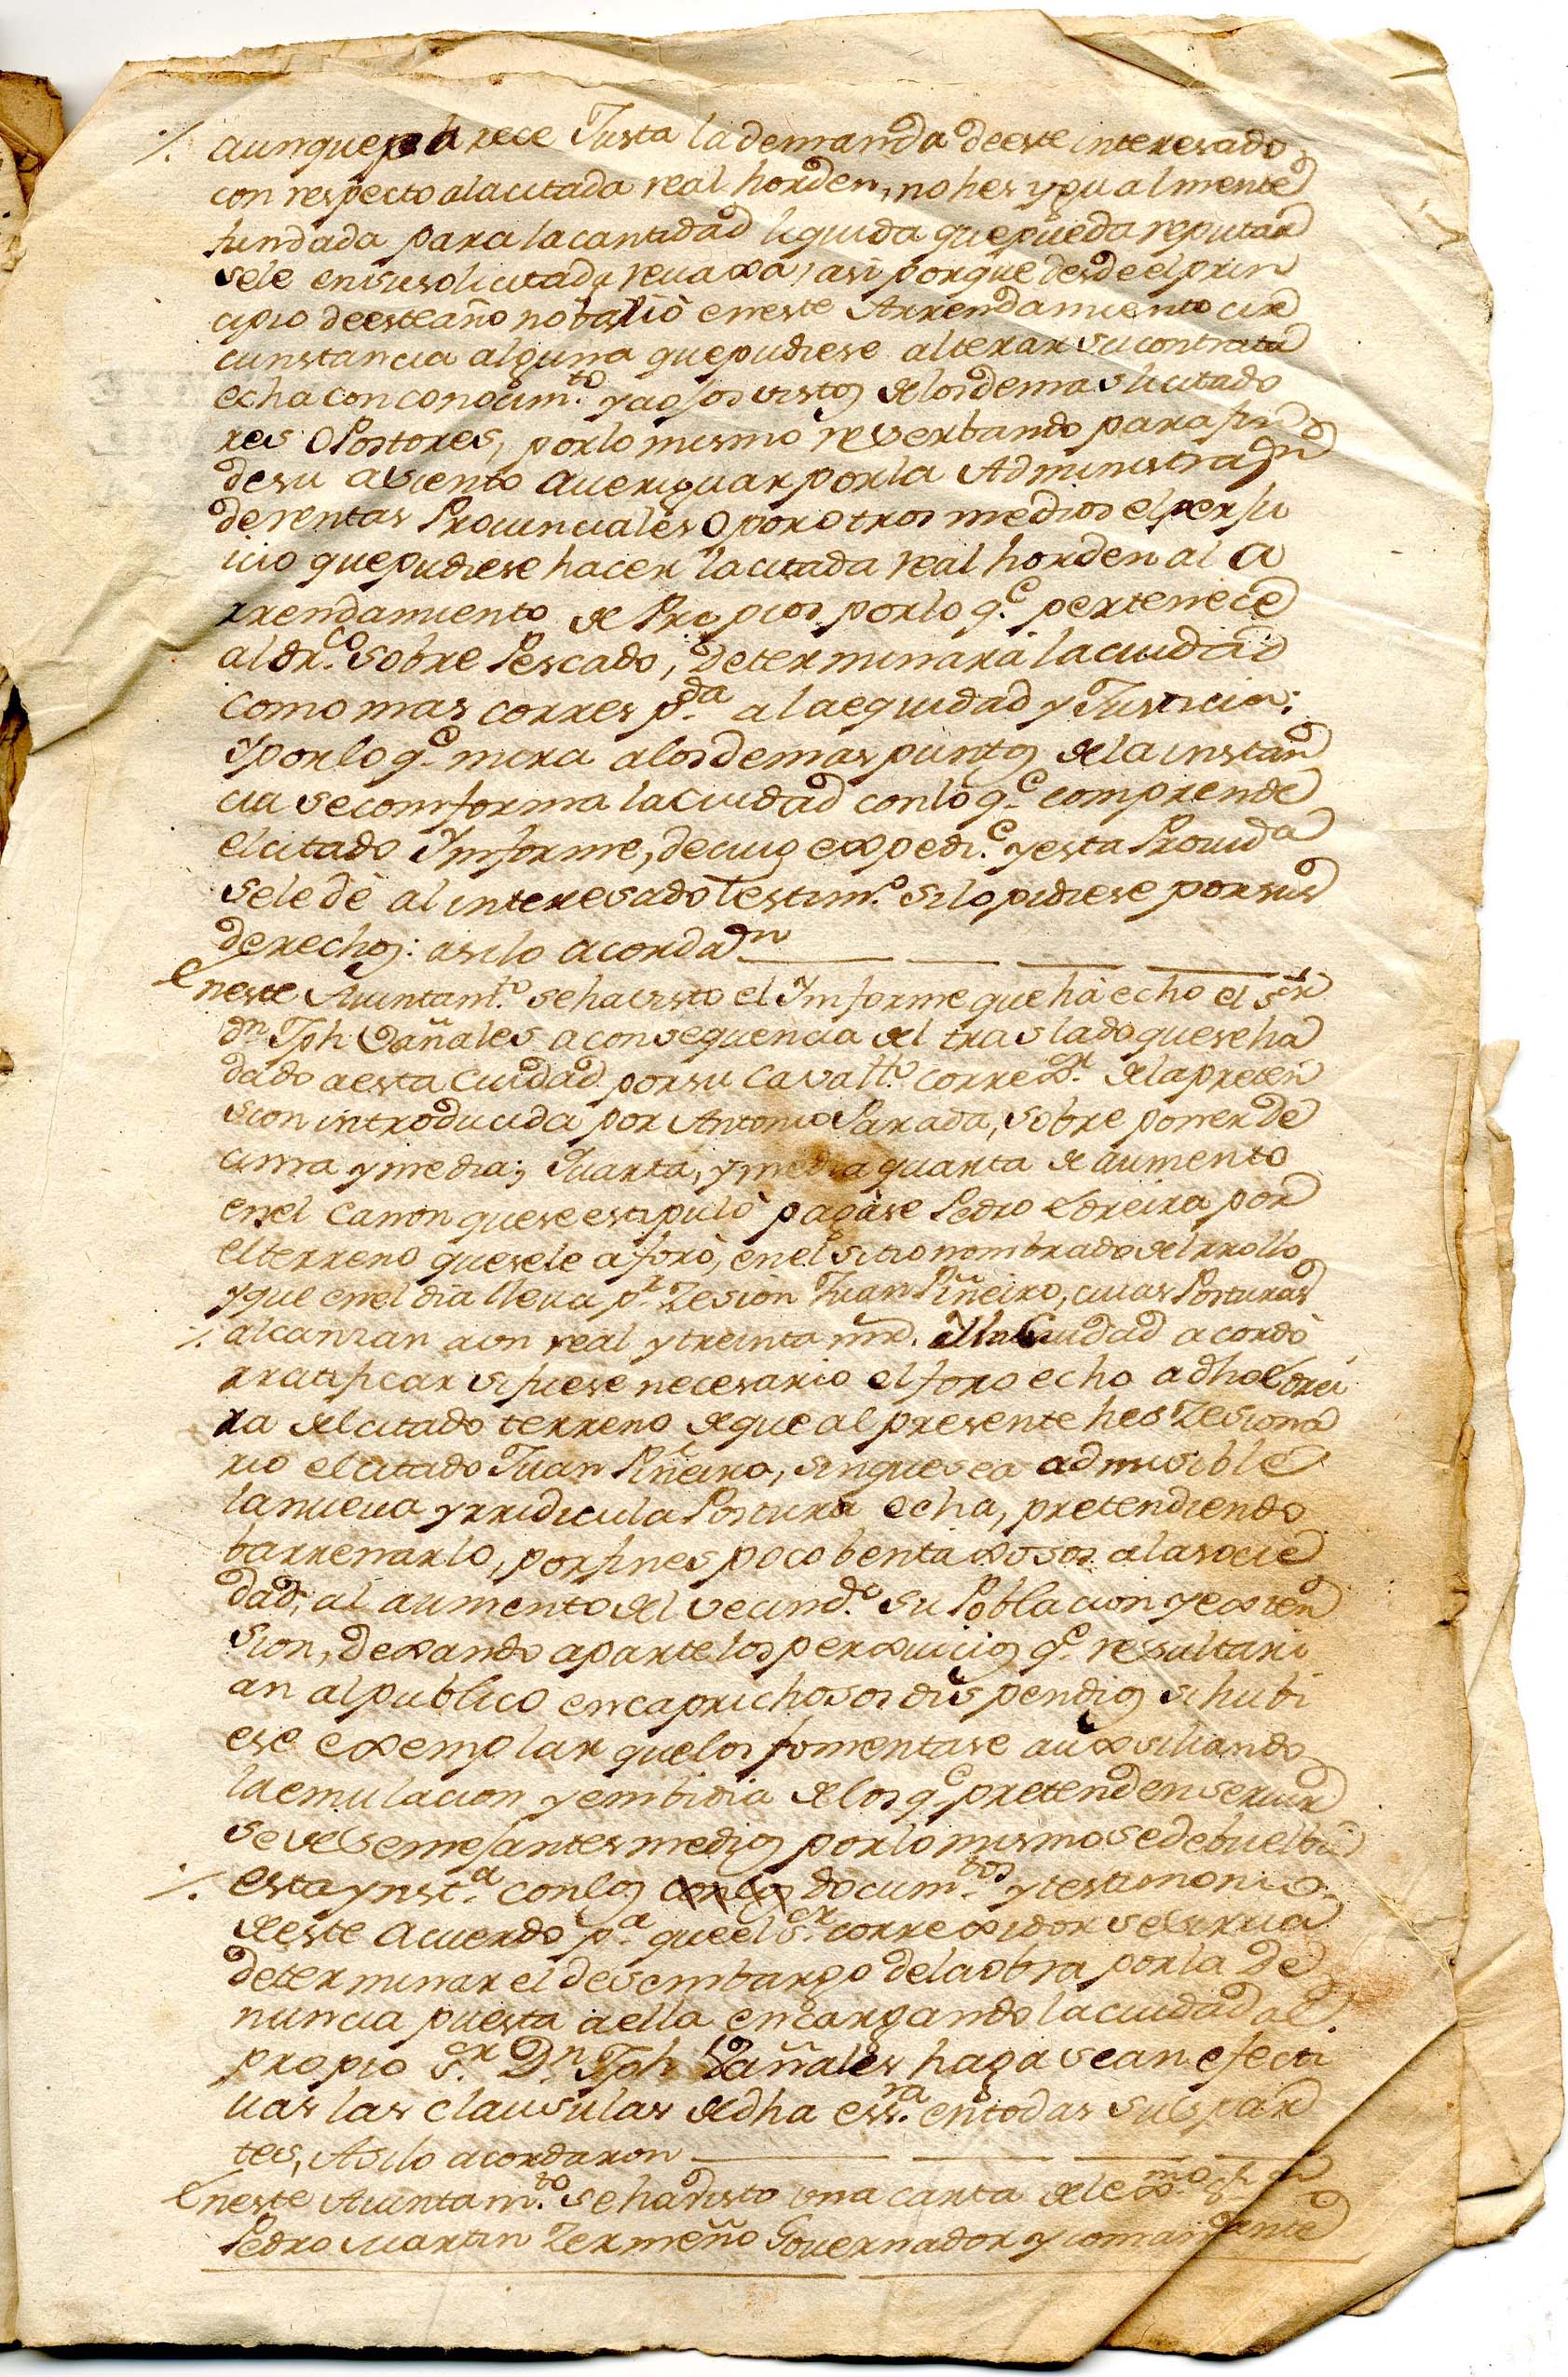 /. aunque parece Justa la demanda de este interesado
con respecto ala citada real horden, no hes ygualmente
fundada para la cantidad liquida que pueda reputar
sele en su solicitada revaxa, asi porque desde el prin
cipio de este año no barió en este Arrendamiento cir
cunstancia alguna que pudiese alterar su contrata
echa con conocim.to y a ojos vistos de los demas licitado
res o Postores, por lo mismo reserbando para fin
de su asiento averiguar por la Administraz.n
de rentas Provinciales o por otros medios el perju
icio que pudiese hacer la citada real horden al a
rrendamiento de Propios por lo q.e pertenece
al dr.co sobre Pescado, determinará la ciudad
como mas corresp.da a la equidad y Justicia:
Y por lo q.e mira a los demas puntos de la instan
cia se comforma la Ciudad con lo q.e comprende
el citado Ymforme, de cuio expedi.e y esta Provid.a
se le dé al interesado Testim.o si lo pidiese por sus
derechos: asi lo acordar.n
En este Aiuntam.to se ha visto el Ymforme que há echo el S.or
d.n Jph Cañales a consequencia del traslado que se ha
dado a esta Ciudad por su Cavall.o correx.r de la preten
sion introducida por Antonio Parada, sobre poner de
cima y media; Quarta, y media quarta de aumento
en el Canon que se estipuló pagáse Pedro Loreira por
el terreno que se le aforó, en el sitio nombrado del rrollo
y que en el dia lleva p.r Zesion Juan Piñeiro, cuias Posturas
/. alcanzan a un real y treinta mrd. Y la Ciudad acordó
rratificar si fuese necesario el foro echo a dho Lorei
ra del citado terreno de que al presente hes Zesiona
rio el citado Juan Piñeiro, sin que sea admisible
la nueva y rridicula Postura echa, pretendiendo
barrenarlo, por fines poco bentaxosos a la socie
dad, al aumento del vecind.o su Poblacion y exten
sion, dexando aparte los perxuicios q.e resultari
an al publico en caprichosos dispendios si hubi
ese exemplar que los fomentase auxsiliando
la emulacion y embidia de los q.e pretenden servir
se de semejantes medios por lo mismo se debuelba
/. esta ynst.a con los con los docum.tos y testimonio
de este acuerdo p.a que el S.or correxidor se sirva
determinar el desembargo de la obra por la de
nuncia puesta a ella encargando la ciudad al
propio S.or D.n Jph Cañales haga sean efecti
vas las clausulas de dha ess.ra en todas sus par
tes, Asi lo acordaron
En este Aiuntam.to se ha visto una carta del ex.mo S.r d.n
Pedro Martin Zermeño Governador y comandante